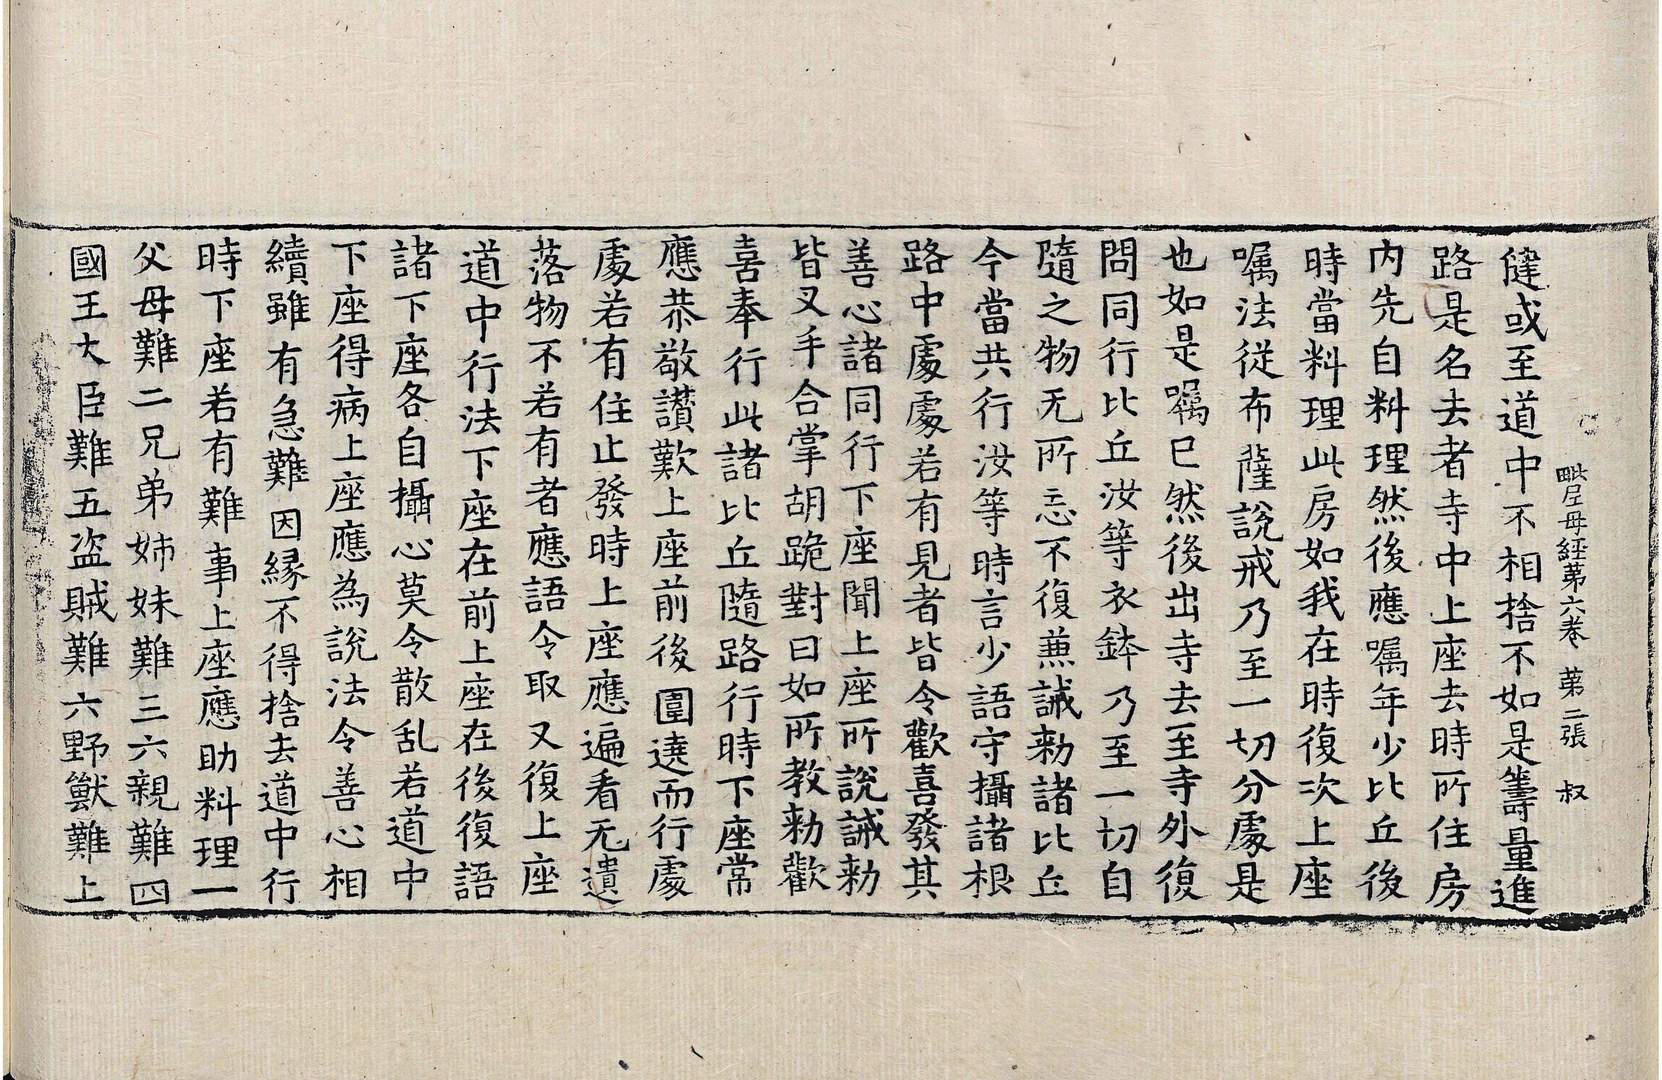 毗尼母經第六卷 第二張 叔
健或至道中不相捨不如是籌量進
路是名去者寺中上座去時所住房
内先自料理然後應囑年少比丘後
時當料理此房如我在時復次上座
囑法從布薩說戒乃至一切分處是
也如是囑已然後出寺去至寺外復
問同行比丘汝等衣鉢乃至一切自
隨之物无所忘不復兼誡勑諸比丘
今當共行汝等時言少語守攝諸根
路中處處若有見者皆令歡喜發其
善心諸同行下座聞上座所說誡勑
皆叉手合掌胡跪對曰如所教勑歡
喜奉行此諸比丘隨路行時下座常
應恭敬讃歎上座前後圍遶而行處
處若有住止發時上座應遍看无遺
落物不若有者應語令取又復上座
道中行法下座在前上座在後復語
諸下座各自攝心莫令散乱若道中
下座得病上座應為說法令善心相
續雖有急難因緣不得捨去道中行
時下座若有難事上座應助料理一
父母難二兄弟姉妹難三六親難四
國王大臣難五盗賊難六野獸難上